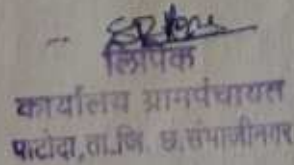 लिपिक
कार्यालय ग्रामपंचायत
पाटोदा,ता.जि. छ.संभाजीनगर